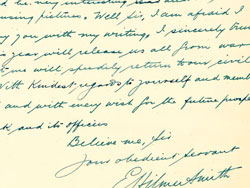 ing pictures. Well, Sir, I am afraid I
y you with my writing, I sincerely trus
s year will release us all from war
we will speedily return to our civil
With kindest regards to yourself and memb
and with every wish for the future prosp
k, and its officers
Believe me, Sir
Your obedient Servant
E Hilmer Smith